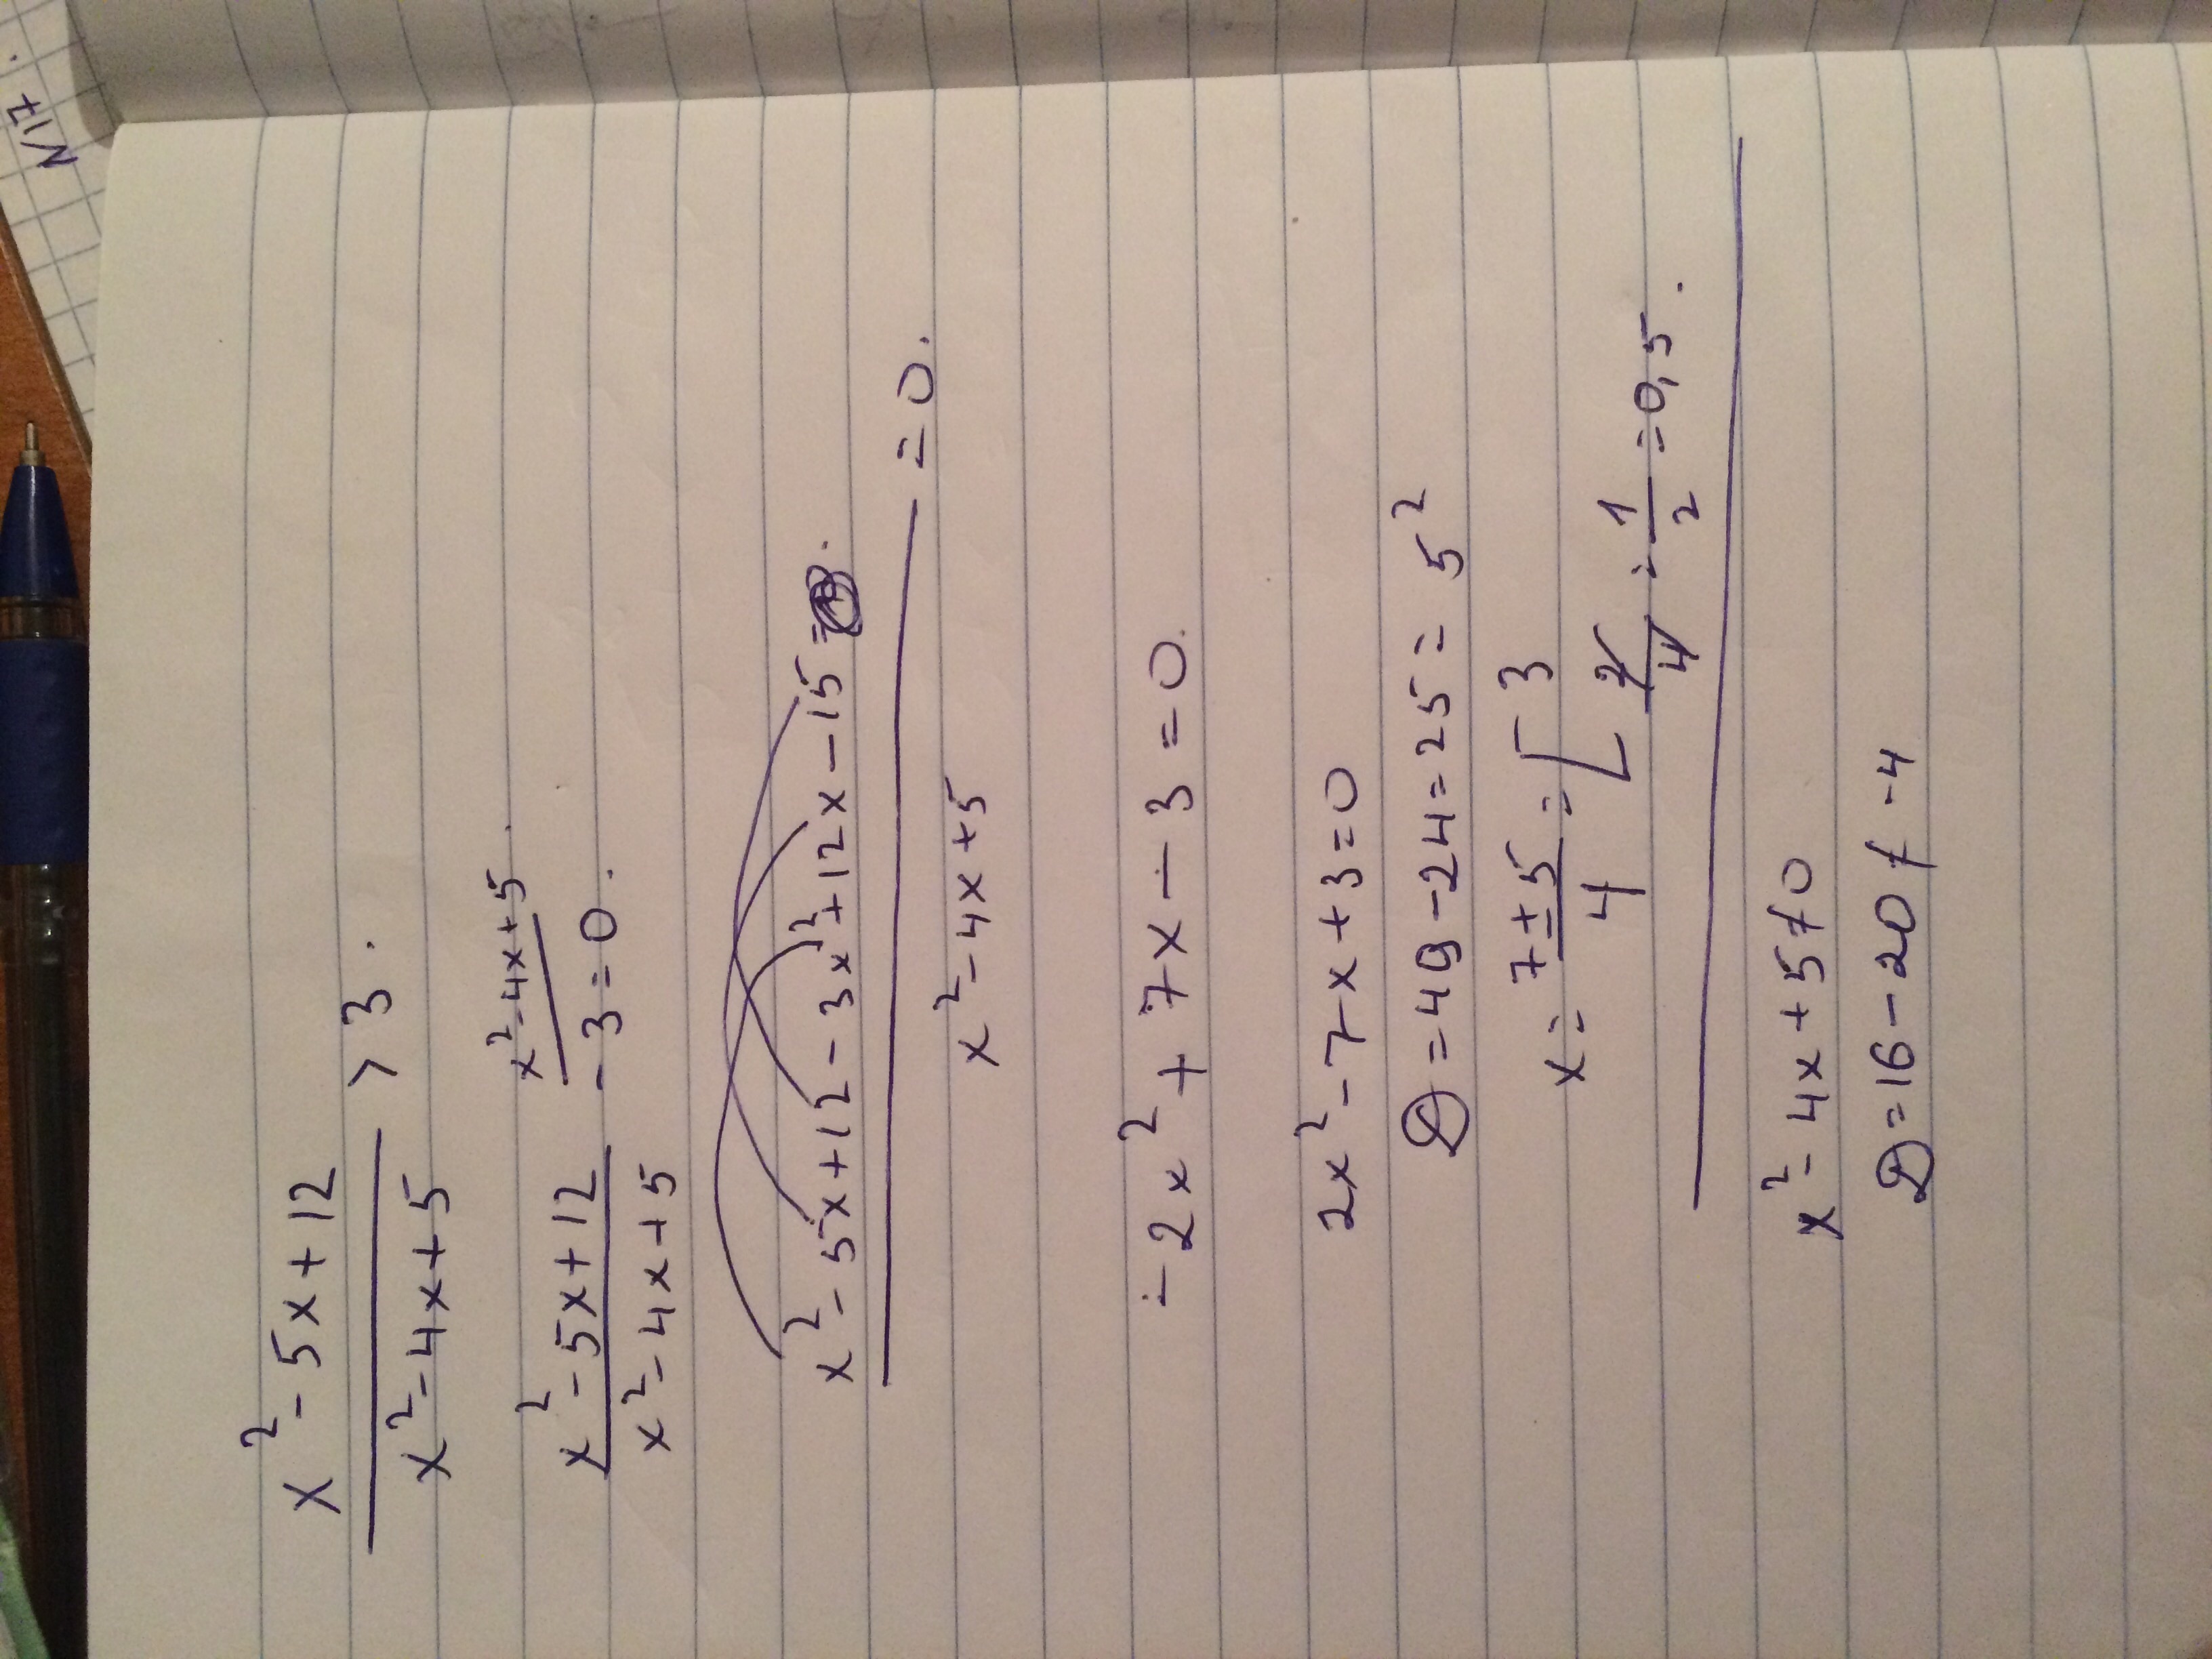 x² - 5x + 12
――――― > 3.
x² - 4x + 5
x² - 4x + 5.
x² - 5x + 12
――――― - 3 = 0.
x² - 4x + 5
x² - 5x + 12 - 3x² + 12x - 15
――――――――――― = 0.
x² - 4x + 5
- 2x² + 7x - 3 = 0.
2x² - 7x + 3 = 0
D = 49 - 24 = 25 = 5²
x = (7 ± 5)/4 = [ 3
2/4 = 1/2 = 0,5.
x² - 4x + 5 ≠ 0
D = 16 - 20 ≠ -4
N17